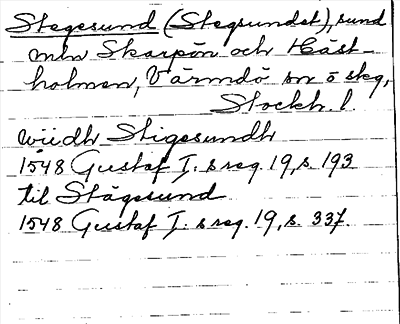 Stegesund (Stegsundet), sund
mln Skarpön och Häst-
holmen, Värmdö sn o skg,
Stockh. l.
wiidh Stigesundh
1548 Gustaf I:s reg. 19, s. 193
til Stägesund
1548 Gustaf I:s reg. 19, s. 337.